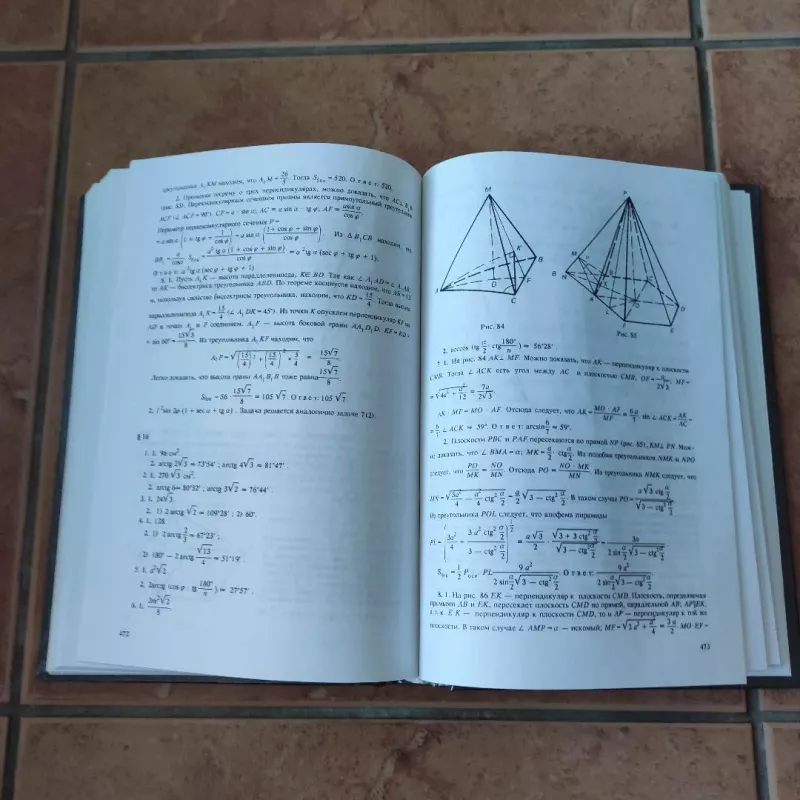 треугольника A₁KM находим, что A₁M = 26/5. Тогда Sбок = 520. Ответ: 520.
2. Применяя теорему о трех перпендикулярах, можно доказать, что AC ⊥ B₁C
(рис. 83). Перпендикулярным сечением призмы является прямоугольный треугольник
ACF (∠ ACF = 90°). CF = a · sin α; AC = a sin α · tg φ; AF = a sin α / cos φ
Периметр перпендикулярного сечения P =
= a sin α (1 + tg φ + 1/cos φ) = a sin α (1 + cos φ + sin φ)/cos φ. Из Δ B₁CB находим, что
BB₁ = a/cos α. Sбок = a² tg α (1 + cos φ + sin φ)/cos φ = a² tg α (sec φ + tg φ + 1).
Ответ: a² tg α (sec φ + tg φ + 1)
8. 1. Пусть A₁K — высота параллелепипеда, K∈ BD. Так как ∠ A₁AD = ∠ A₁AB,
то AK — биссектриса треугольника ABD. По теореме косинусов находим, что
и, используя свойство биссектрисы треугольника, находим, что KD = 15/4. Тогда высота
параллелепипеда A₁K = 15/4 (∠ A₁DK = 45°). Из точки K опускаем перпендикуляр KF на
AD и точки A₁ и F соединяем. A₁F — высота боковой грани AA₁D₁D. KF = KD ×
× sin 60° = 15√3/8. Из треугольника A₁KF находим, что
A₁F = √((15/4)² + (15/4)² · 3/4 = 15√7/8
Легко доказать, что высота грани AA₁B₁B тоже равна 15√7/8
Sбок = 56 · 15√7/8 = 105 √7. Ответ: 105 √7.
2. l² sin 2φ (1 + sec α + tg α). Задача решается аналогично задаче 7(2).
§ 16
1. 1. 96 см².
2. arctg 2√3 ≈ 73°54′; arctg 4√3 ≈ 81°47′.
2. 1. 270 √3 см².
2. arctg 6 ≈ 80°32′; arctg 3√2 ≈ 76°44′.
3. 1. 24√3.
2. 1) 2 arctg √2 ≈ 109°28′; 2) 60°.
4. 1. 128.
2. 1) 2 arctg 2/3 ≈ 67°23′;
2) 180° − 2 arctg √13/4 ≈ 51°19′.
5. 1. a²√2.
2. 2arctg (cos φ · tg 180°/n) ≈ 27°57′.
6. 1. 3m²√2/8.
472
M
K
B
A
O
F
C
Рис. 84
P
M
B
N
A
K
O
D
L
F
Рис. 85
2. arccos (tg α/2 · ctg 180°/n) ≈ 56°28′.
7. 1. На рис. 84 AK ⊥ MF. Можно доказать, что AK — перпендикуляр к плоскости
CMB. Тогда ∠ ACK есть угол между AC и плоскостью CMB. OF = a/2√3; MF =
= √(4a² + a²/12) = 7a/2√3.
AK · MF = MO · AF. Отсюда следует, что AK = MO · AF/MF = 6a/7. sin ∠ ACK = AK/AC =
= 6/7. ∠ ACK ≈ 59°. Ответ: arcsin 6/7 ≈ 59°.
2. Плоскости PBC и PAF пересекаются по прямой NP (рис. 85), KM ⊥ PN. Мож-
но доказать, что ∠ BMA = α; MK = a/2 · ctg α/2. Из подобия треугольников NMK и NPO
следует, что PO/MK = NO/MN. Отсюда PO = NO · MK/MN. Из треугольника NMK следует, что
MN = √(3a²/4 − a²/4 ctg² α/2) = a/2 √(3 − ctg² α/2). В таком случае PO = a√3 ctg α/2 / √(3 − ctg² α/2).
Из прямоугольника POL следует, что апофема пирамиды
PL = (3a²/4 + 3 a² ctg² α/2 / (3 − ctg² α/2))^(1/2) = a√3/2 · √(3 + 3 ctg² α/2)/√(3 − ctg² α/2) = 3a / (2 sin α/2 √(3 − ctg² α/2))
Sбок = 1/2 Pосн · PL = 9 a² / (2 sin α/2 √(3 − ctg² α/2)). Ответ: 9 a² / (2 sin α/2 √(3 − ctg² α/2))
8. 1. На рис. 86 EK — перпендикуляр к плоскости CMD. Плоскость, определяемая
прямыми AB и EK, пересекает плоскость CMD по прямой, параллельной AB; AP∥EK,
т. к. EK — перпендикуляр к плоскости CMD, то и AP — перпендикуляр к той же
плоскости. В таком случае ∠ AMP = α — искомый; MF = √(2a² + a²/4) = 3a/2. MO·EF =
473